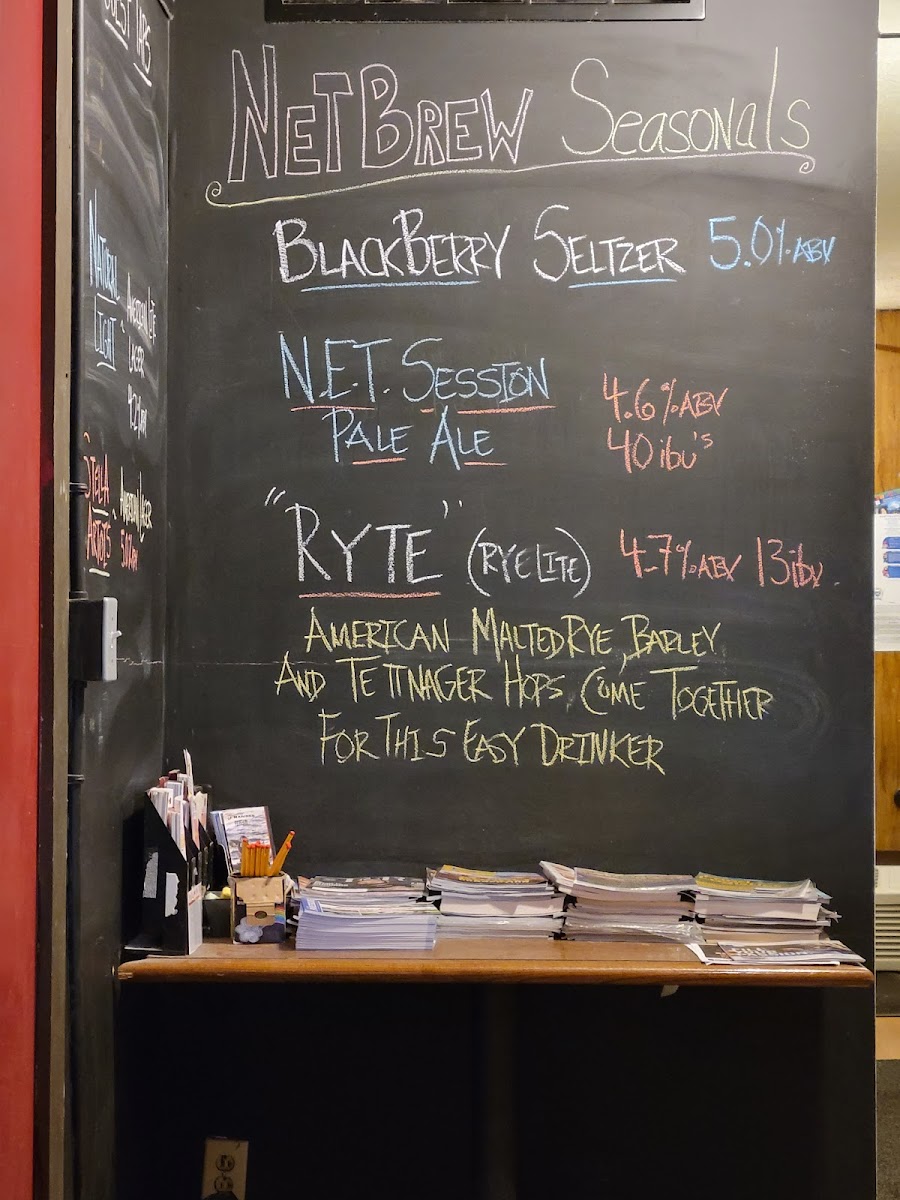 GUEST TAPS
NATURAL
LIGHT
AMERICAN LITE
LAGER
4.2% ABV
STELLA
ARTOIS
LAGER
5.0% ABV
NETBREW Seasonals
BLACKBERRY SELTZER 5.0% ABV
N.E.T. SESSION
PALE ALE
4.6% ABV
40 ibu's
"RYTE" (RYE LITE) 4.7% ABV 13 ibu
AMERICAN MALTED RYE, BARLEY
AND TETTNAGER HOPS, COME TOGETHER
FOR THIS EASY DRINKER